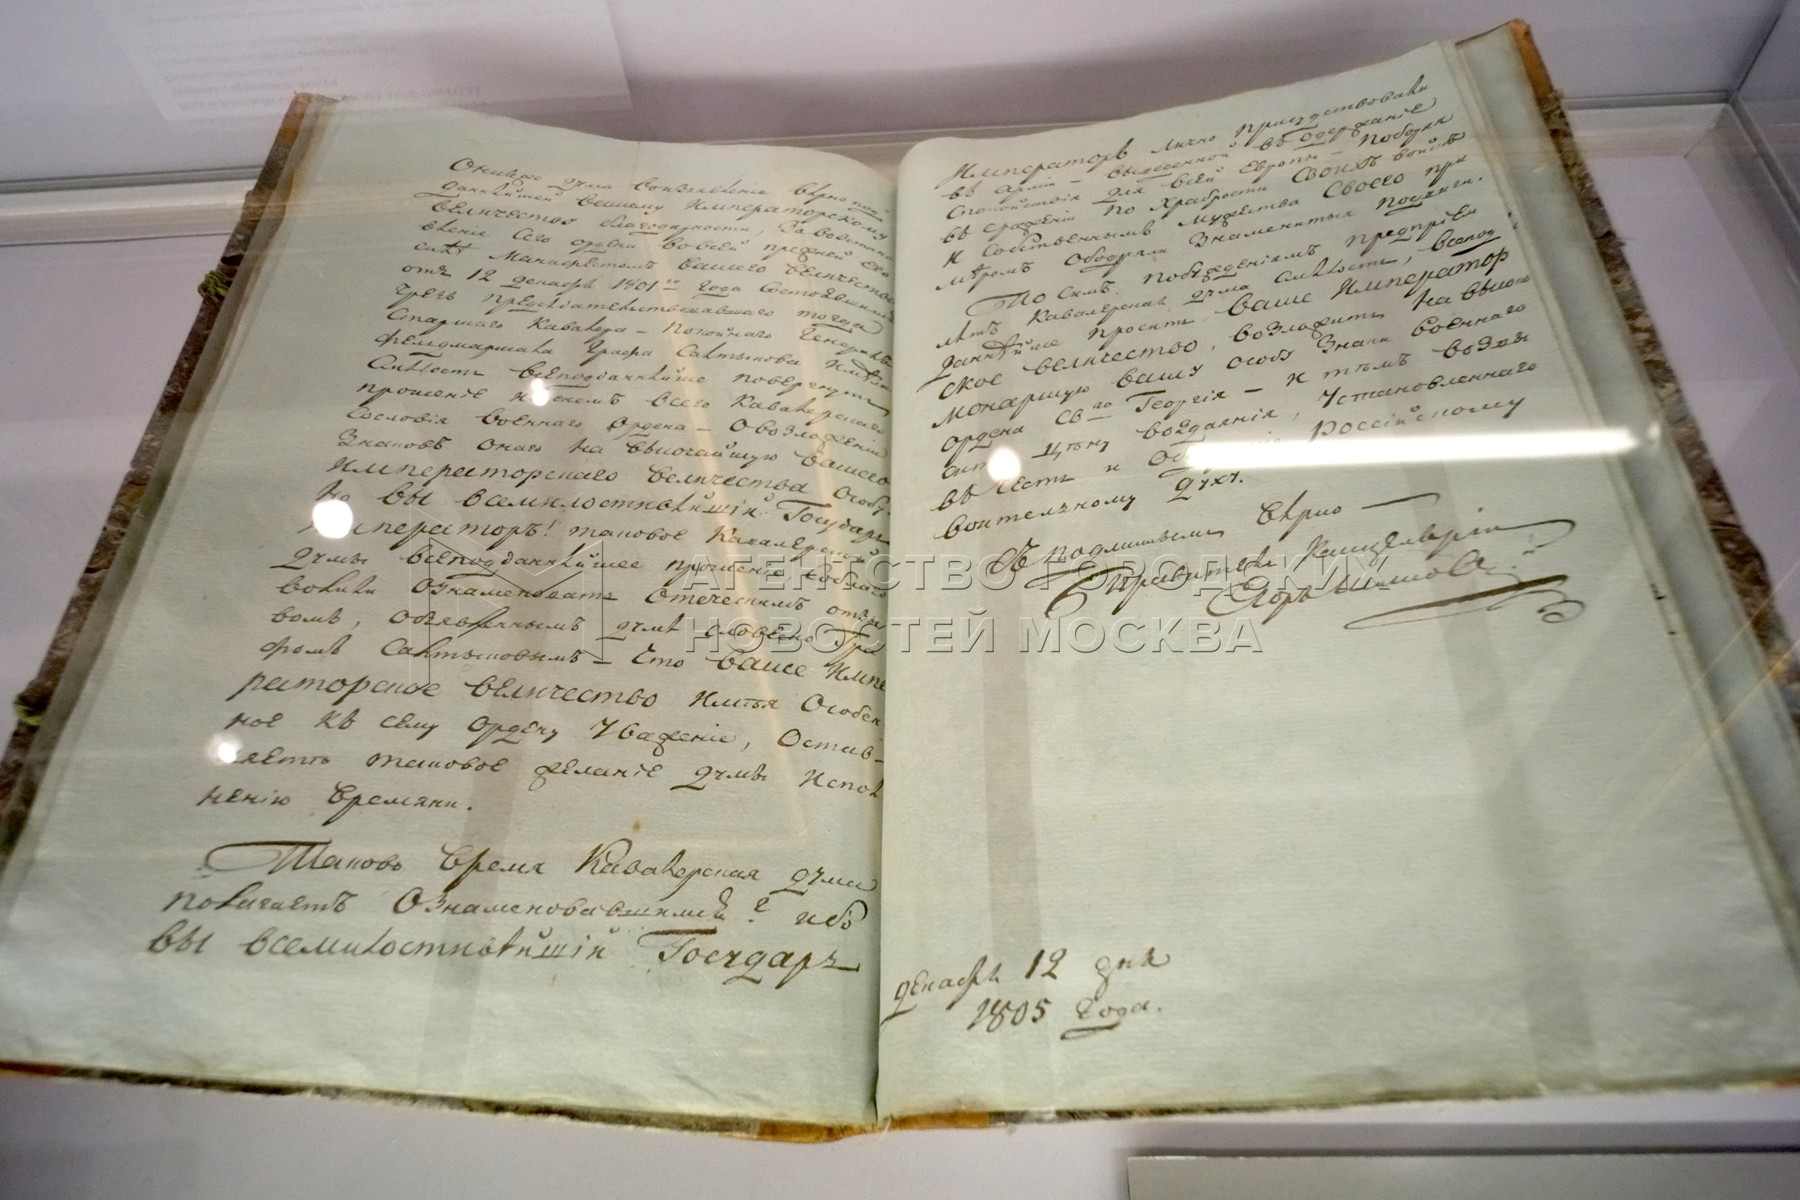 дума возъимевъ верно под
даннѣйшей вашему Императорскому
Величеству благодарности, за возстано
вленіе сего ордена во всей прежней его
силѣ Манифестомъ вашего величества
отъ 12 декабря 1801го года состоявшимся
чрезъ председательствовавшаго тогда
старшаго Кавалера – покойнаго Генералъ
фелдмаршала Графа Салтыкова имѣла
смѣлость всеподданнѣйше повергнуть
прошеніе всего Кавалерскаго
сословія военнаго ордена – о возложеніи
знаковъ онаго на высочайшую вашего
Императорскаго величества особу.
Но вы всемилостивѣйшій Государь
Императоръ! таковое Кавалерской
думы всеподданнѣйшее прошеніе соблаго
волили ознаменовать отеческимъ отзы
вомъ, объявленнымъ думѣ словесно Гра
фомъ Салтыковымъ – что ваше Импе
раторское величество имѣя особен
ное къ сему ордену уваженіе, остав-
ляетъ таковое желаніе думы испол
ненію времяни.
Таково время Кавалерская дума
полагаетъ ознаменовавшимся ибо
вы всемилостивѣйшій Государь
Императоръ лично присудствовали
въ арміи – выведенной въ одержаніе
спокойствія для всей Европы – победили
въ сраженіи по храбрости своихъ войскъ
и собственнымъ мужества своего при
мѣромъ ободряли знаменитые подвиги.
По симъ побужденіямъ предпріем
летъ Кавалерская дума смѣлость, всепод
даннѣйше просить ваше Император
ское величество, возложить на высоко
монаршую вашу особу знаки военнаго
ордена свго Георгія – и тѣмъ возвы
сить цѣну воздаянія, установленнаго
въ честь и Россійскому
воительному духу.
Съ подлиннымъ верно —
Правитель Канцеляріи
Егоръ
декабря 12 дня
1805 года.
АГЕНТСТВО ГОРОДСКИХ
НОВОСТЕЙ МОСКВА